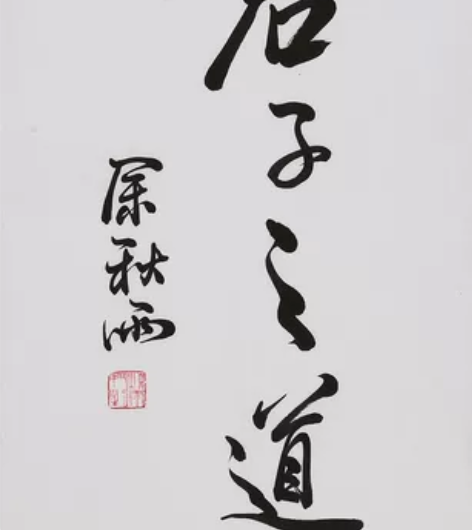 君子之道
余秋雨